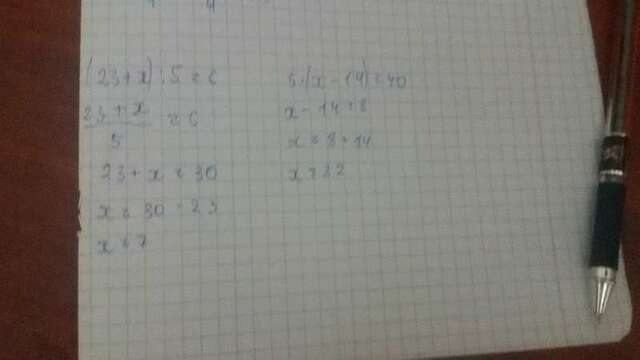 (23+x):5=6
23+x
=6
5
23+x=30
x=30-23
x=7
5·(x-14)=40
x-14=8
x=8+14
x=22